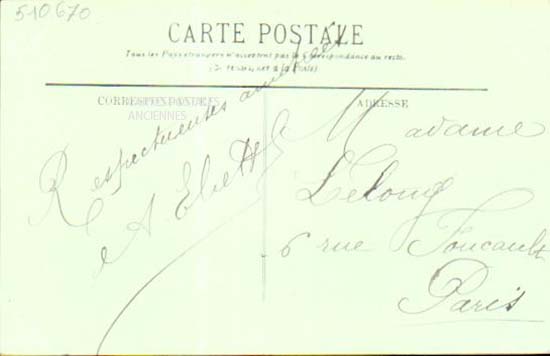 510670
CARTE POSTALE
Tous les Pays étrangers n'acceptent pas la Correspondance au recto.
(Se renseigner à la Poste)
CORRESPONDANCE
ANCIENNES
ADRESSE
Respectueuses amitiés
Madame
Lelong
6 rue Foucault
Paris